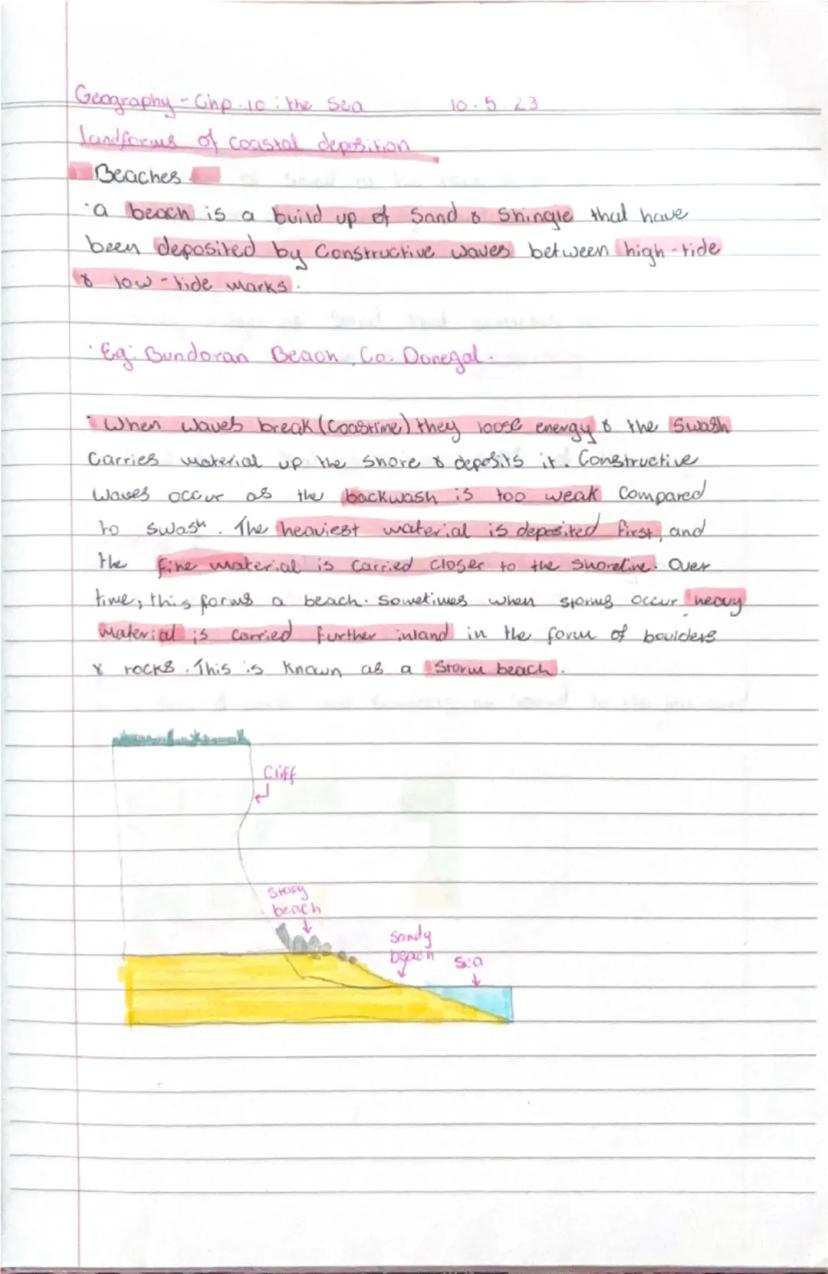 Geography - Chp. 10 : the Sea 10.5.23
landforms of coastal deposition
Beaches
· a beach is a build up of sand & shingle that have
been deposited by constructive waves between high-tide
& low-tide marks.
· Eg: Bundoran Beach, Co. Donegal.
· When waves break (coastline) they loose energy & the swash
carries material up the shore & deposits it. Constructive
waves occur as the backwash is too weak compared
to swash. The heaviest material is deposited first, and
the fine material is carried closer to the shoreline. Over
time, this forms a beach. Sometimes when storms occur heavy
material is carried further inland in the form of boulders
& rocks. This is known as a storm beach.
Cliff
Stony
beach
Sandy
beach
Sea